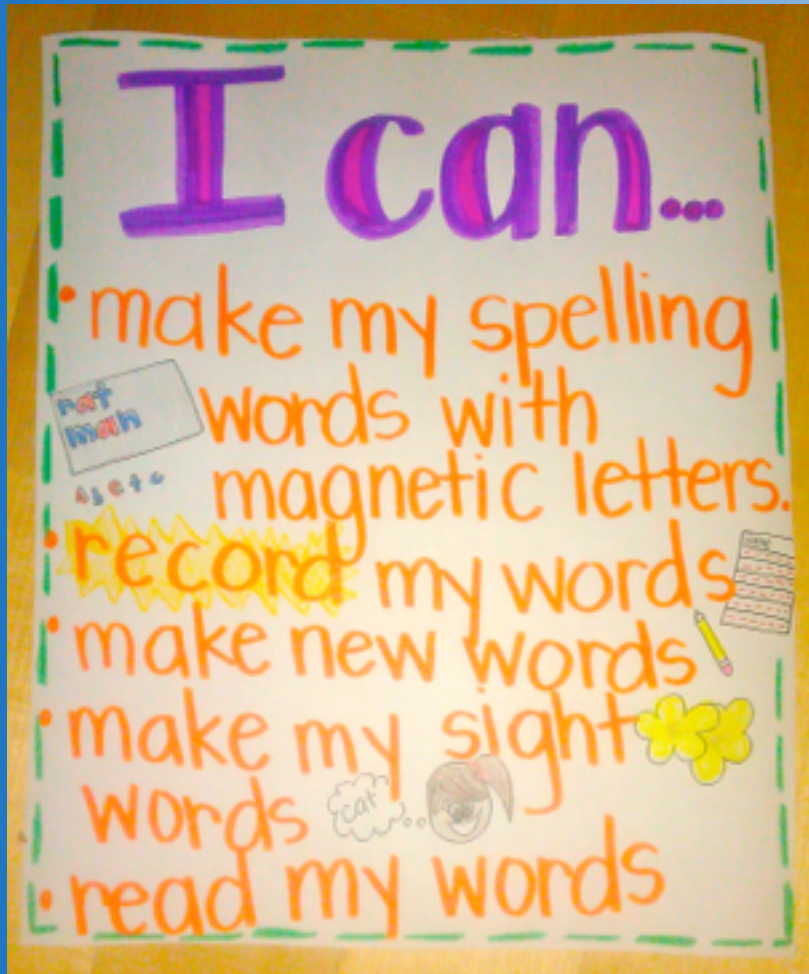 I can...
• make my spelling
rat
man
words with
magnetic letters.
• record my words
• make new words
• make my sight
words
cat
• read my words